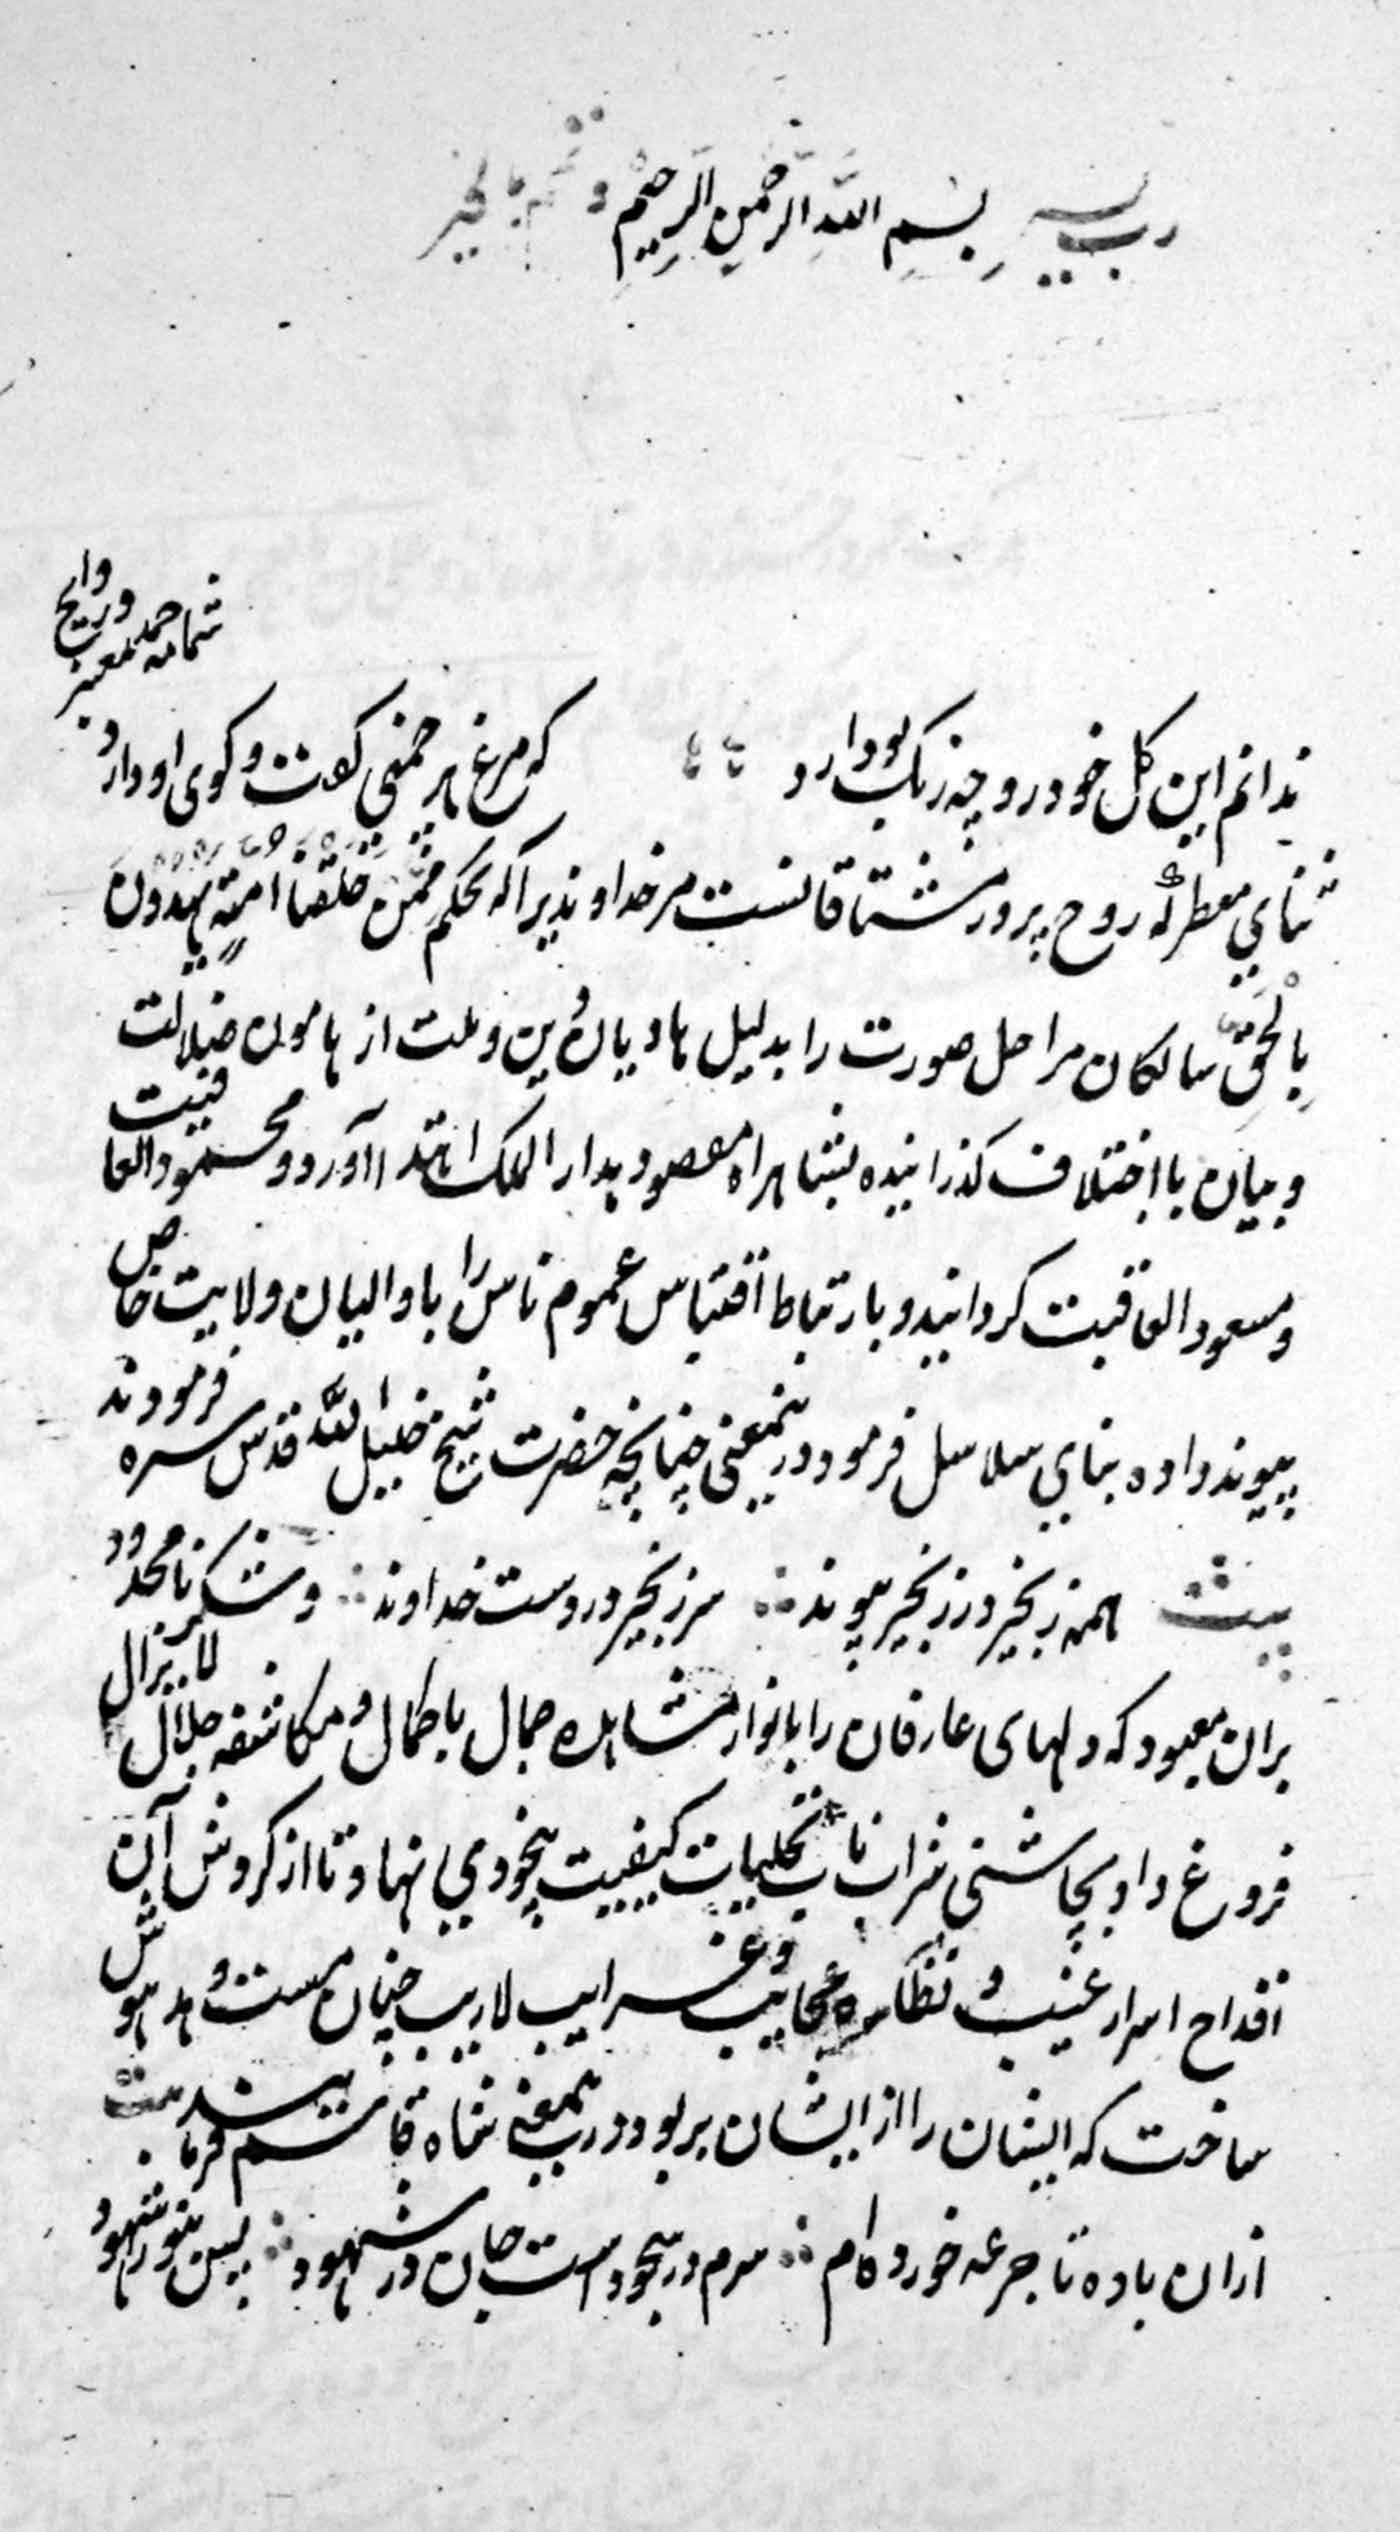 رب یسر بسم الله الرحمن الرحیم و تمم بالخیر
ندانم این کل خودرو چه رنک بو دارد که مرغ هر چمنی کفت و کوی او دارد شمامه حمد معنبر و روایح
ثنای معطر که روح پرور مشتاقانست مر خداوندیرا که بحکم فممن خلقنا امة یهدون
بالحق سالکان مراحل صورت را بدلیل هادیان دین و ملت از هامون ضلالت
و بیان با اختلاف کذرانیده بشاهراه مقصود بدار الملک اهتدا آورد و محمود العاقبت
و مسعود العاقبت کردانید و بارتباط اقتباس عموم ناس را با والیان ولایت خاص
پیوند داده بنای سلاسل فرمود درینمعنی چنانچه حضرت شیخ خلیل الله قدس سره فرمودند
بیت همه زنجیر در زنجیر پیوند سر زنجیر در دست خداوند و شکر نامحدود
بران معبود که دلهای عارفان را بانوار مشاهده جمال باکمال و مکاشفه جلال لایزال
فروغ داد و بچاشنی شراب ناب تجلیات کیفیت بیخودی نهاد تا از کردش آن
اقداح اسرار غیب و نظاره عجایب و غرایب لاریب چنان مست و مدهوش
ساخت که ایشان را از ایشان بربود درینمعنی شاه قاسم فرمایند بیت
ازان باده تا جرعه خورده ام سرم در سجود است جان در شهود پس بنور شهود